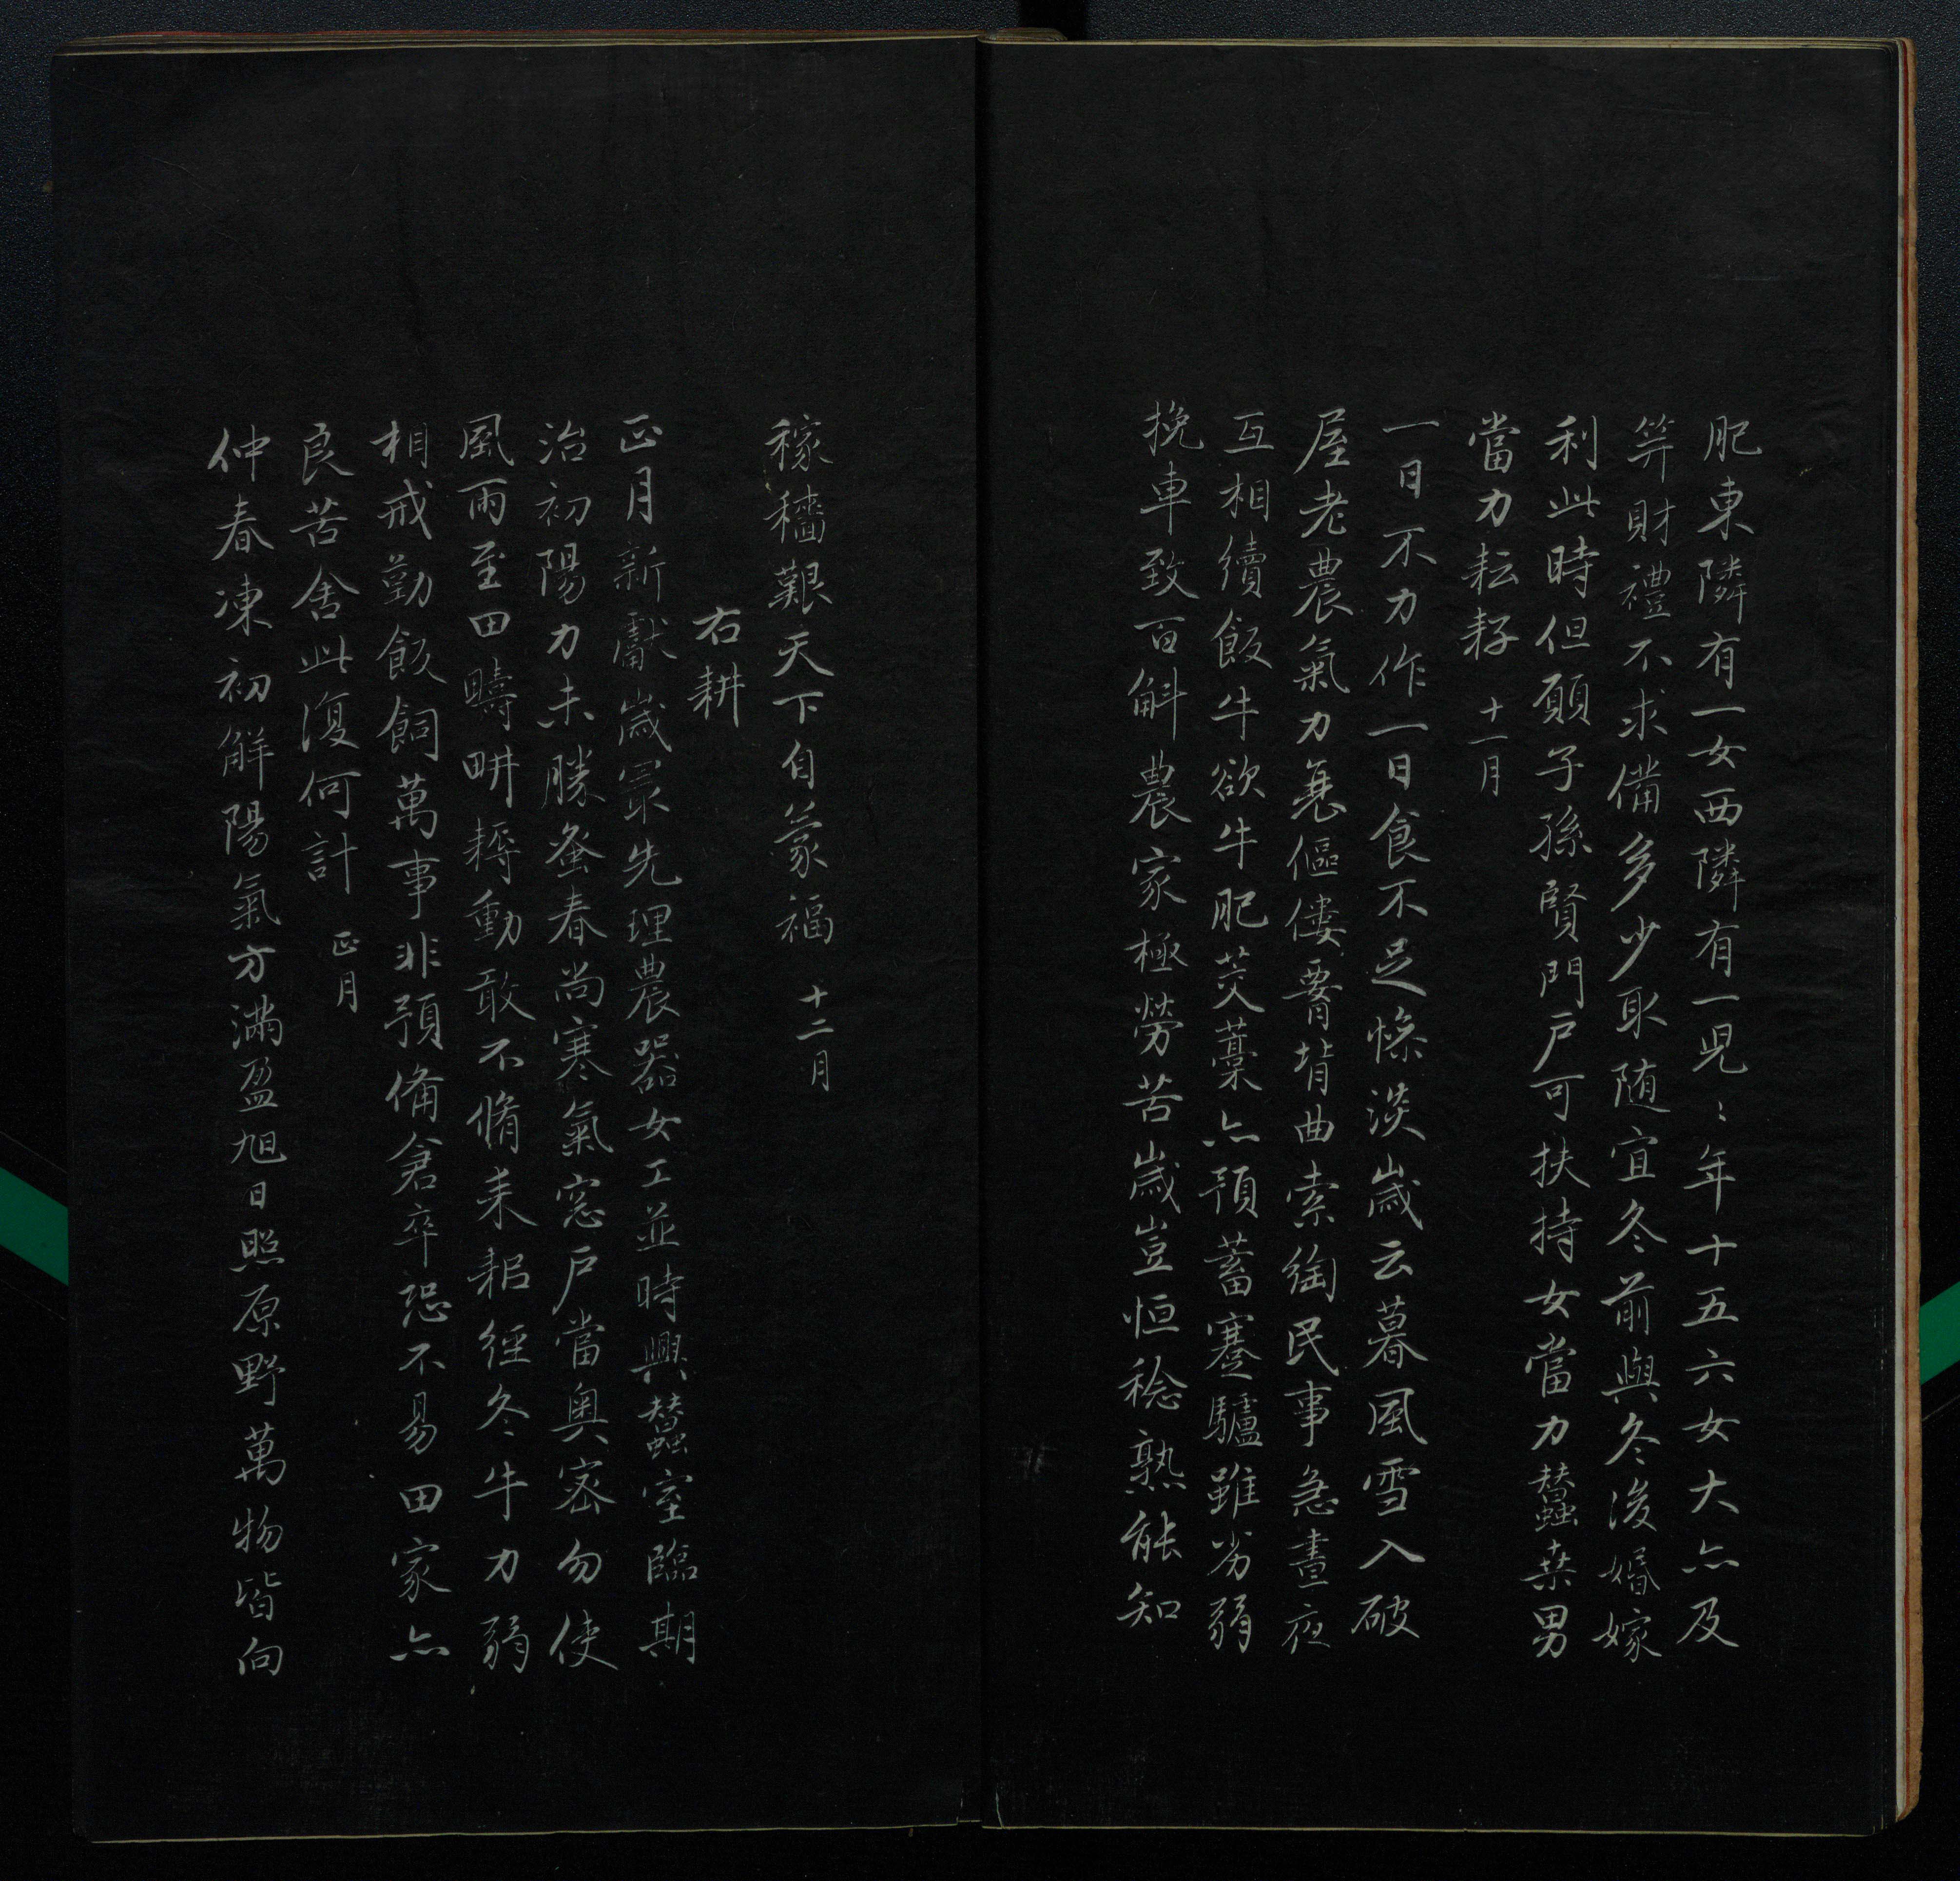 肥東隣有一女西隣有一兒〻年十五六女大亦及
笄財禮不求備多少取随宜冬前與冬後婚嫁
利此時但願子孫賢門戶可扶持女當力蠶桒男
當力耘耔 十一月
一日不力作一日食不足慘淡歲云暮風雪入破
屋老農氣力衰傴僂腰背曲索綯民事急晝夜
互相續飯牛欲牛肥茭藁亦預蓄蹇驢雖劣弱
挽車致百斛農家極勞苦歲豈恒稔熟能知
稼穡艱天下自蒙福 十二月
右耕
正月新獻歲冣先理農器女工並時興蠶室臨期
治初陽力未勝蚤春尚寒氣窓戶當奧密勿使
風雨至田疇耕耨動敢不脩耒耜經冬牛力弱
相戒勤飯飼萬事非預備倉卒恐不易田家亦
良苦舍此復何計 正月
仲春凍初解陽氣方滿盈旭日照原野萬物皆向